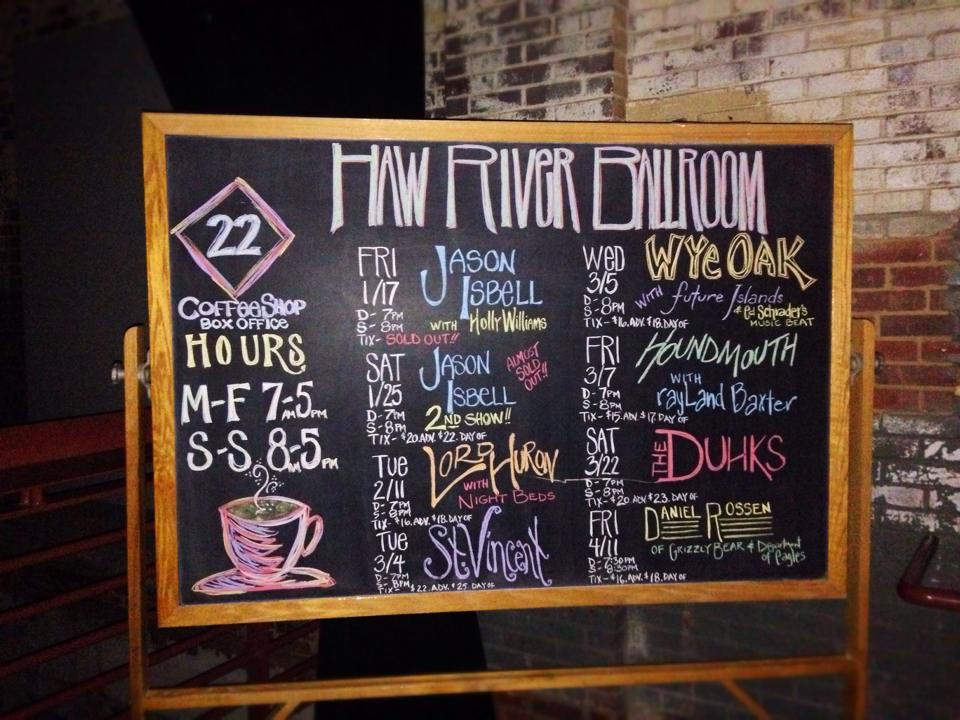 HAW RIVER BALLROOM
22
COFFEE SHOP
BOX OFFICE
HOURS
M-F 7AM-5PM
S-S 8AM-5PM
FRI
1/17
D-7PM
S-8PM
TIX- SOLD OUT!!
JASON
ISBELL
WITH Holly Williams
SAT
1/25
D-7PM
S-8PM
TIX- $20.ADV. $22.DAY OF
JASON
ISBELL
2ND SHOW!!
ALMOST
SOLD
OUT!!
TUE
2/11
D-7PM
S-8PM
TIX-$16.ADV. $18.DAY OF
LORD HURON
WITH
NIGHT BEDS
TUE
3/4
D-7PM
S-8PM
TIX- $22.ADV. $25.DAY OF
St. Vincent
WED
3/5
D-8PM
TIX-$16.ADV. $18.DAY OF
WYE OAK
WITH future Islands
& Ed Schrader's
MUSIC BEAT
FRI
3/7
D-7PM
S-8PM
TIX-$15.ADV. $17.DAY OF
HOUNDMOUTH
WITH
rayLand Baxter
SAT
3/22
D-7PM
S-8PM
TIX-$20 ADV $23.DAY OF
THE DUHKS
FRI
4/11
D-7:30PM
S-8:30PM
TIX-$16.ADV. $18.DAY OF
DANIEL ROSSEN
OF GRIZZLY BEAR & Department
of Eagles